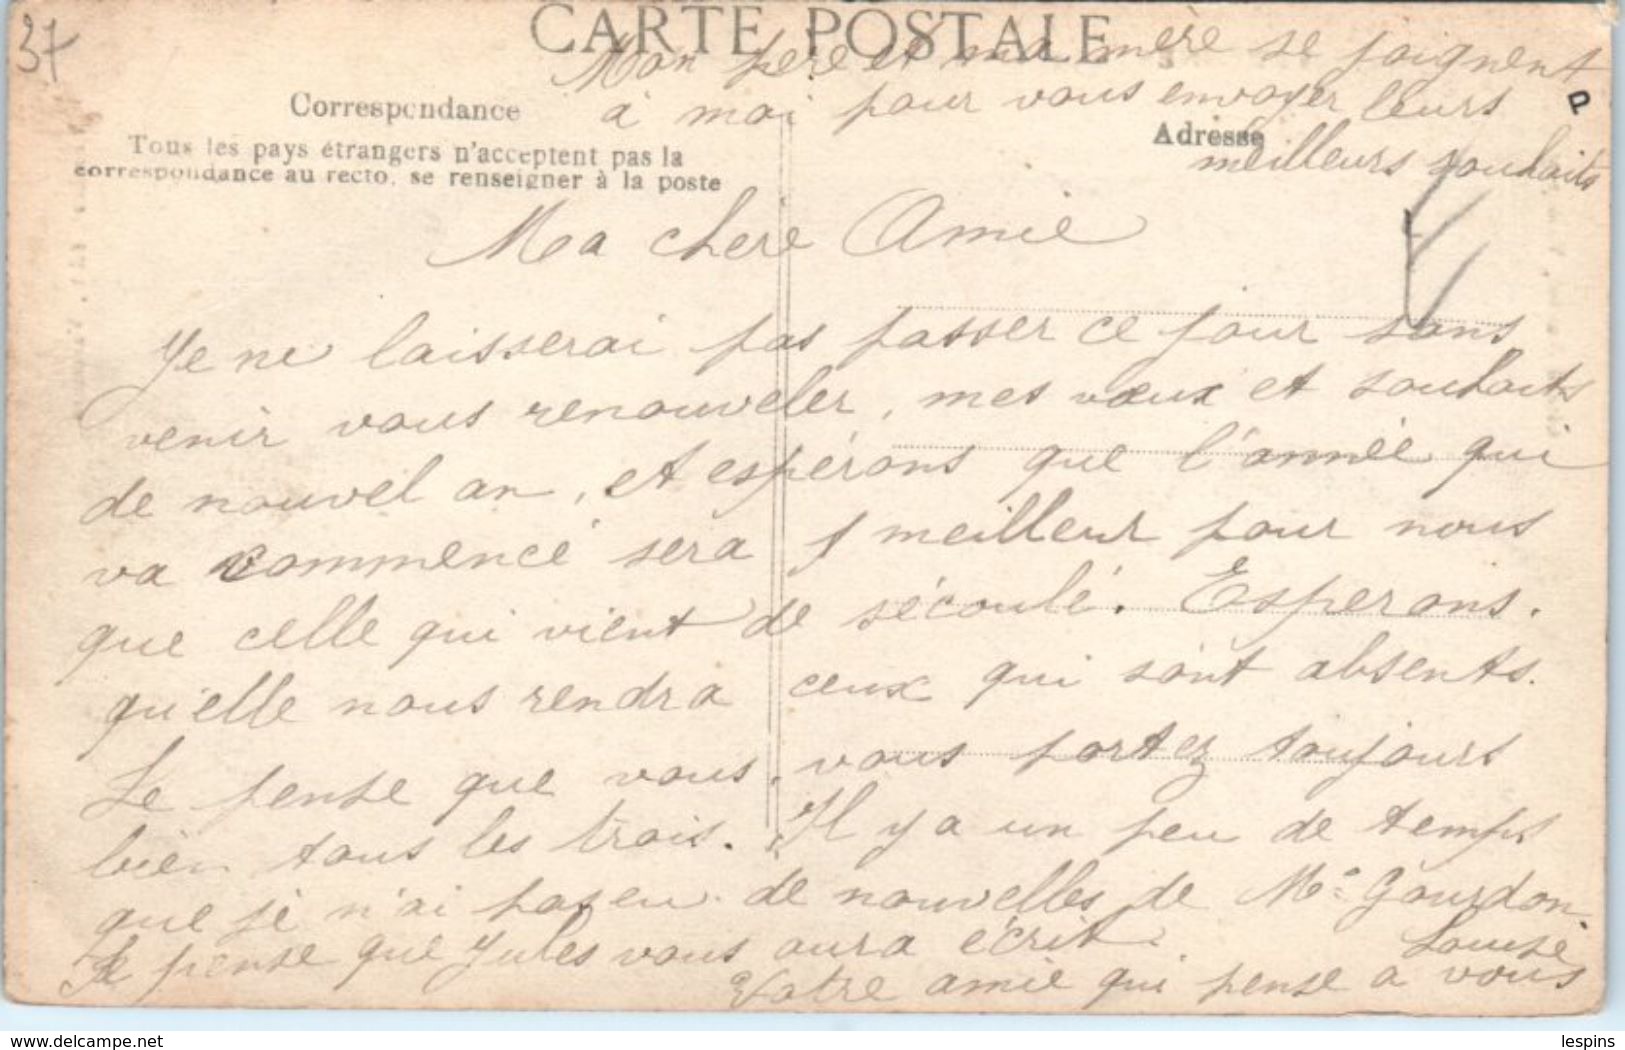 37
CARTE POSTALE
Mon père et ma mère se joignent
à moi pour vous envoyer leurs
meilleurs souhaits
P
Correspondance
Adresse
Tous les pays étrangers n'acceptent pas la
correspondance au recto, se renseigner à la poste
Ma chere Amie
Je ne laisserai pas passer ce jour sans
venir vous renouveler, mes vœux et souhaits
de nouvel an, et espérons que l'année qui
va commencé sera meilleur pour nous
que celle qui vient de sécoulé. Esperons.
qu'elle nous rendra ceux qui sont absents.
Je pense que vous, vous portez toujours
bien tous les trois. Il y a un peu de temps
que je n'ai pas eu de nouvelles de Me Gourdon.
Je pense que Jules vous aura écrit.
Louise
Votre amie qui pense a vous
lespins
delcampe.net